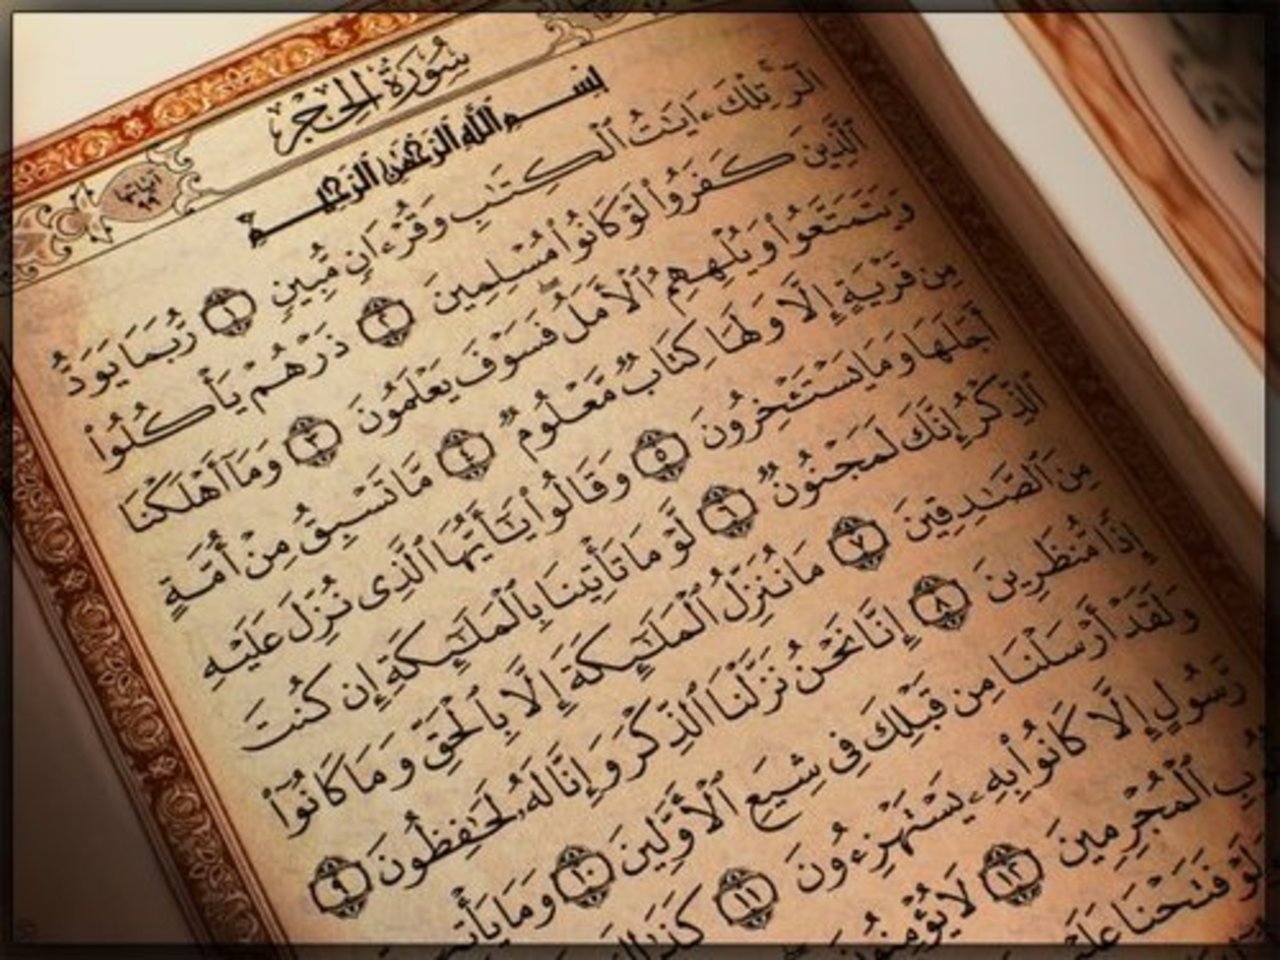 سُورَةُ الحِجْرِ
بِسْمِ ٱللَّهِ ٱلرَّحْمَٰنِ ٱلرَّحِيمِ
الٓر ۚ تِلْكَ ءَايَٰتُ ٱلْكِتَٰبِ وَقُرْءَانٍ مُّبِينٍ ١ رُّبَمَا يَوَدُّ
ٱلَّذِينَ كَفَرُوا۟ لَوْ كَانُوا۟ مُسْلِمِينَ ٢ ذَرْهُمْ يَأْكُلُوا۟
وَيَتَمَتَّعُوا۟ وَيُلْهِهِمُ ٱلْأَمَلُ ۖ فَسَوْفَ يَعْلَمُونَ ٣ وَمَآ أَهْلَكْنَا
مِن قَرْيَةٍ إِلَّا وَلَهَا كِتَابٌ مَّعْلُومٌ ٤ مَّا تَسْبِقُ مِنْ أُمَّةٍ
أَجَلَهَا وَمَا يَسْتَـْٔخِرُونَ ٥ وَقَالُوا۟ يَٰٓأَيُّهَا ٱلَّذِى نُزِّلَ عَلَيْهِ
ٱلذِّكْرُ إِنَّكَ لَمَجْنُونٌ ٦ لَّوْ مَا تَأْتِينَا بِٱلْمَلَٰٓئِكَةِ إِن كُنتَ
مِنَ ٱلصَّٰدِقِينَ ٧ مَا نُنَزِّلُ ٱلْمَلَٰٓئِكَةَ إِلَّا بِٱلْحَقِّ وَمَا كَانُوٓا۟
إِذًا مُّنظَرِينَ ٨ إِنَّا نَحْنُ نَزَّلْنَا ٱلذِّكْرَ وَإِنَّا لَهُۥ لَحَٰفِظُونَ ٩
وَلَقَدْ أَرْسَلْنَا مِن قَبْلِكَ فِى شِيَعِ ٱلْأَوَّلِينَ ١٠ وَمَا يَأْتِي
رَّسُولٍ إِلَّا كَانُوا۟ بِهِۦ يَسْتَهْزِءُونَ ١١ كَذَٰلِكَ
ٱلْمُجْرِمِينَ ١٢ لَا يُؤْمِنُونَ
وَلَوْ فَتَحْنَا عَلَيْ